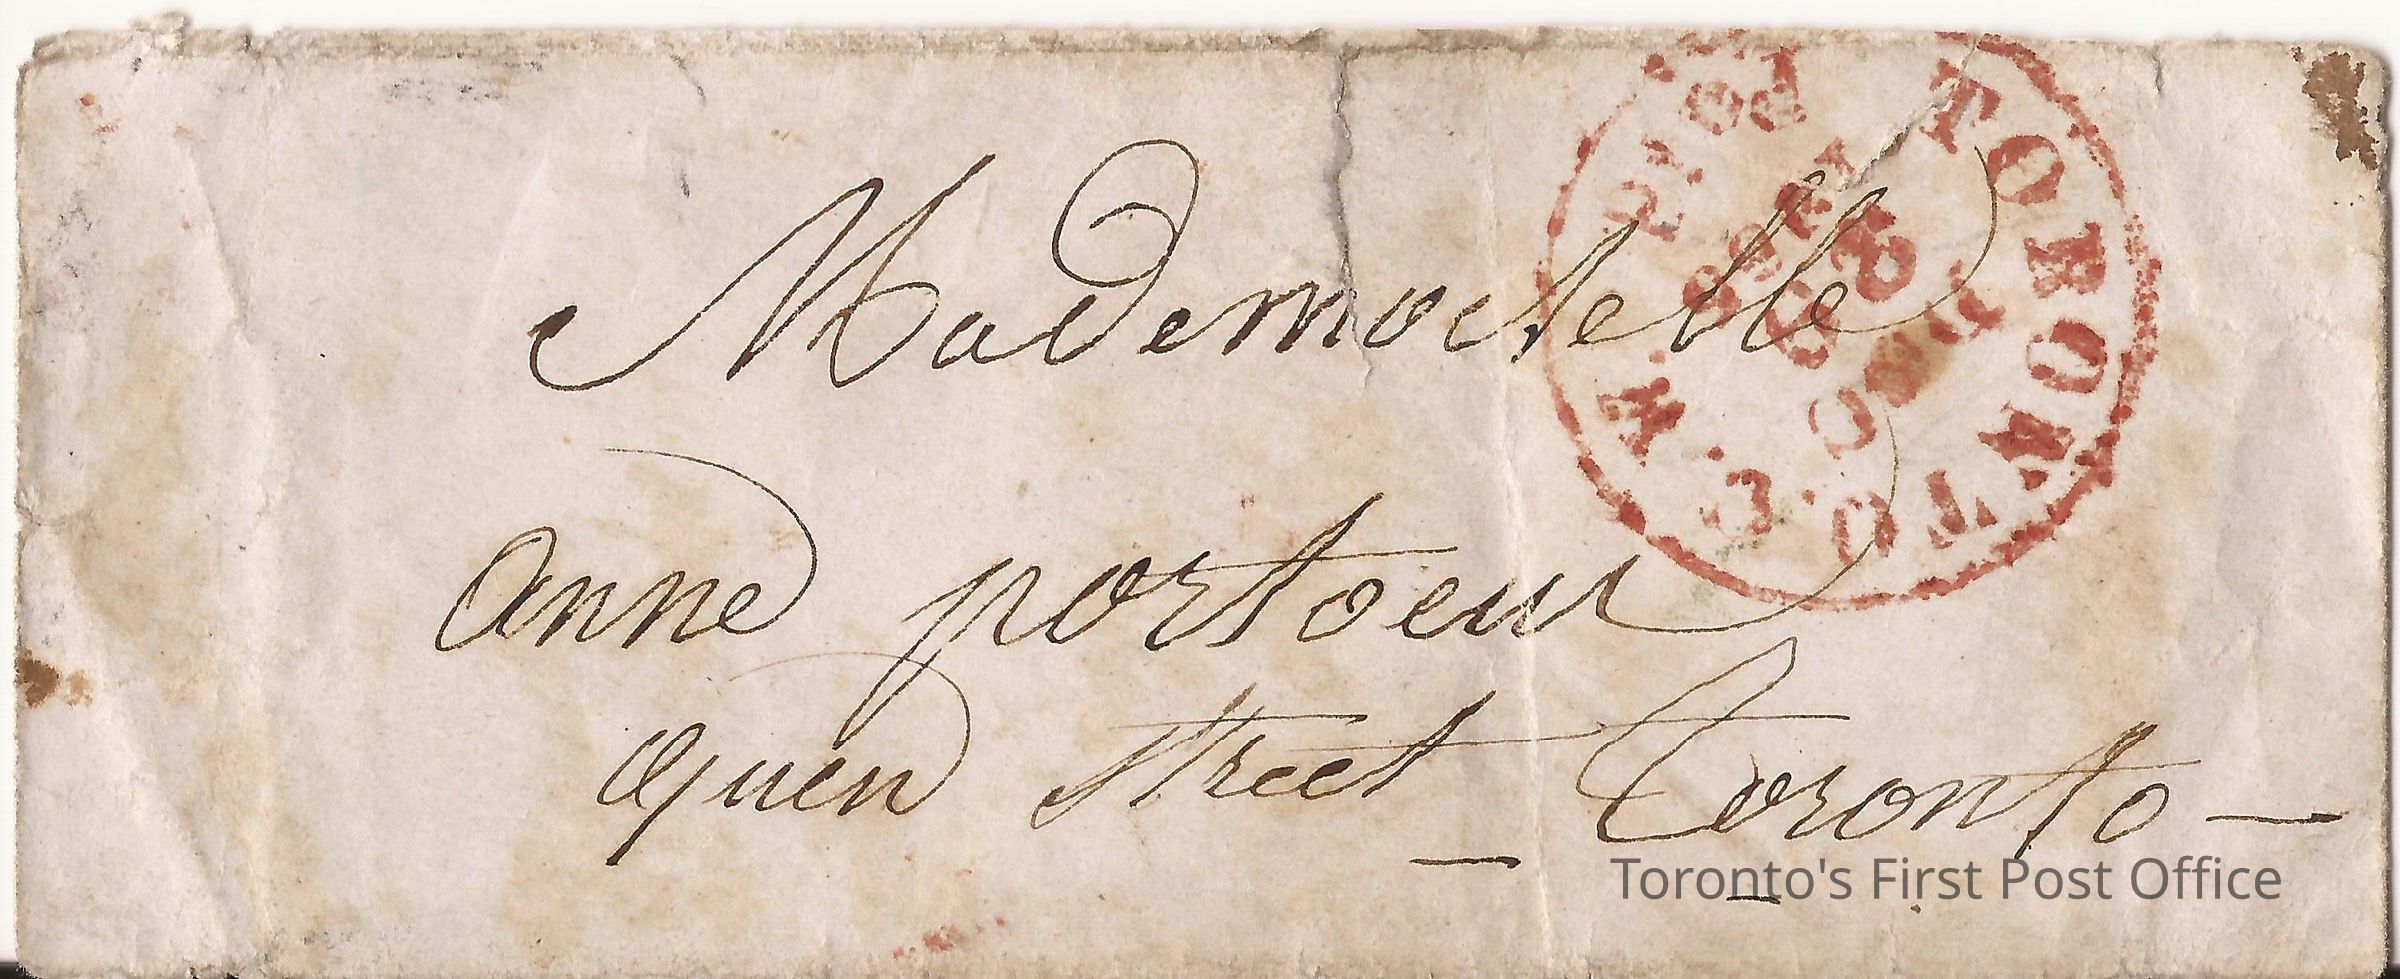 Mademoiselle
TORONTO. C. W.
PAID
anne portoeur
quen street Toronto —
Toronto's First Post Office